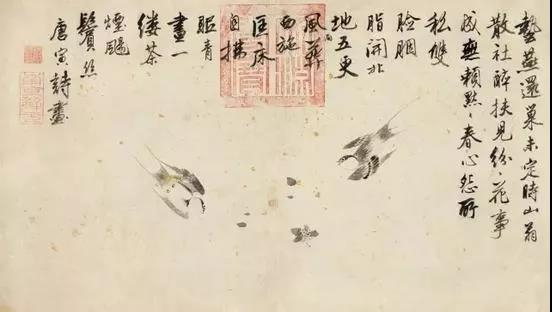 蟄燕還巢未定時山翁
散社醉扶兒紛〻花事
成無賴默〻春心怨所
私雙
臉胭
脂開北
地五更
風雨葬
西施
匡床
自拂
眠青
晝一
縷茶
煙颺
鬢絲
唐寅詩畫